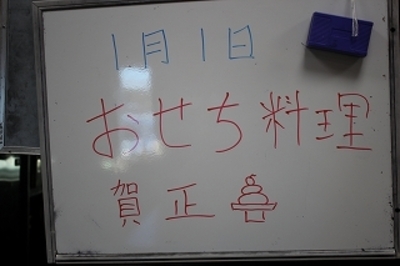 1月1日
おせち料理
賀正